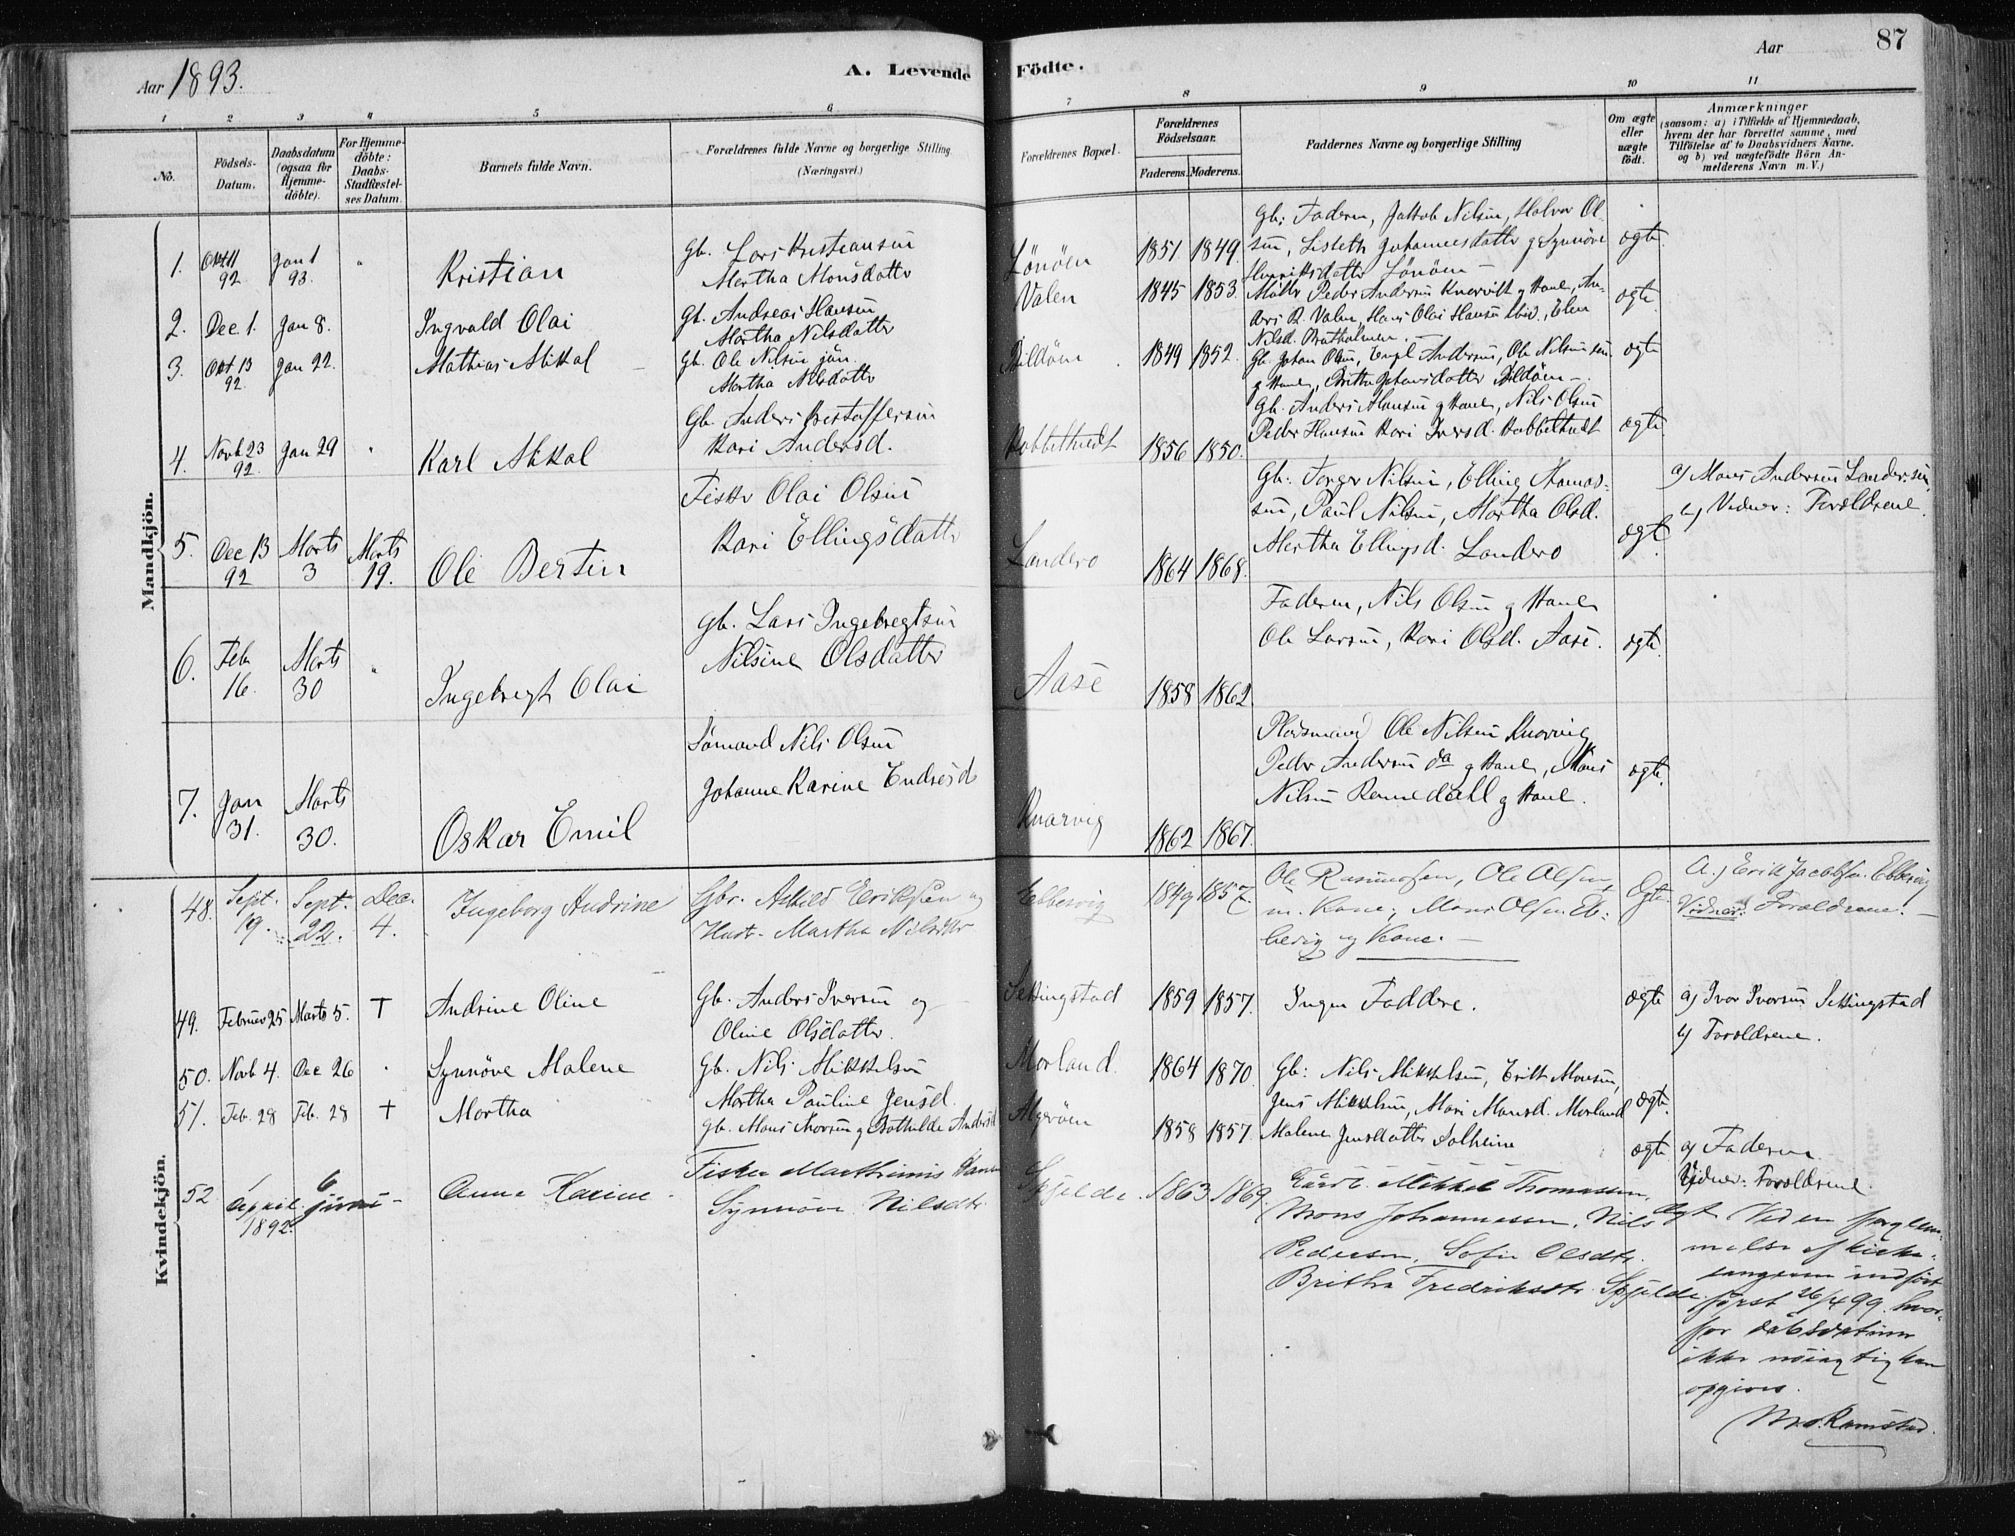 Aar 1893.
A. Levende Födte.
Aar
87
1 2 3 4 5 6 7 8 9 10 11
No.
Födsels-Datum.
Daabsdatum (ogsaa for Hjemme-döbte).
For Hjemme-döbte: Daabs-Stadfæstel-ses Datum.
Barnets fulde Navn.
Forældrenes fulde Navne og borgerlige Stilling (Næringsvei.)
Forældrenes Bopæl.
Forældrenes Födselsaar.
Faderens. Moderens.
Faddernes Navne og borgerlige Stilling
Om ægte eller uægte födt.
Anmærkninger
(saasom: a) i Tilfælde af Hjemmedaab,
hvem der har forrettet samme, med
Tilföielse af to Daabsvidners Navne.
og b) ved uægtefödte Börn An-
melderens Navn m.V.)
Mandkjön.
1. Okt 11 92 Jan 1 93. " Kristian
Gb. Lars Kristiansen
Mertha Monsdatter
Lönöen 1851 1849.
Gb: Faderen, Jakob Nilsen, Halvor Ol-
sen, Lisbeth Johannesdatter g Synnöve
Henriksdatter Lönöen
ægte.
2. Dec 1. Jan 8. Ingvald Olai
Gb. Andreas Hansen
Martha Nilsdatter
Valen 1845 1853.
Peder Andersen Knarvik g Kone, An-
ders R. Valen, Hans Olai Hansen ibid., Elen
Nilsd. Bratholmen.
ægte.
3. Okt 13 92 Jan 22. Mathias Mikal
Gb. Ole Nilsen jün.
Martha Nilsdatter
Bildöen 1849 1852.
Gb. Johan Olsen, Engl. Andersen, Ole Nilsen sen.
g Kone, Brithe Johansdatter Bildöen
ægte
4. Novb 23 92. Jan 29 " Karl Mikal
Gb. Anders Kristoffersen
Kari Andersd.
Kobbeltvedt 1856 1850.
Gb. Anders Hansen g Kone, Nils Olsen
Peder Hansen Kari Iversd. Kobbeltvedt
ægte.
5. Dec 13 92 Marts 3 Marts 19. Ole Bertin
Fisker Olai Olsen
Kari Ellingsdatter
Landero 1864 1868.
Gb: Torger Nilsen, Elling Thomas-
sen, Paul Nilsen, Martha Olsd.
Mertha Ellingsd. Landero
ægte.
a) Mons Andersen Landero
b) Vidner: Forældrene.
6. Feb 16. Marts 30 " Ingebregt Olai
Gb. Lars Ingebregtsen
Nilsine Olsdatter
Aase 1858 1862
Faderen, Nils Olsen g Kone
Ole Larsen, Kari Olsd. Aase.
ægte.
7. Jan 31. Marts 30. Oskar Emil
Sömand Nils Olsen
Johanne Karine Endresd
Knarvig 1862 1867.
Pladsmand Ole Nilsen Knarvig
Peder Andersen da g Kone, Mons
Nilsen Rennedahl g Kone.
ægte.
Kvindekjön.
48. Sept. 19. Sept. 22. Dec. 4. Ingeborg Andrine
Gbr. Askild Eriksen og
Hust. Martha Nilsdtr
Ebbesvig 1849 1857.
Ole Rasmussen, Ole Olsen
m. Kone; Mons Olsen Eb-
besvig og Kone. —
Ægte.
A.) Erik Jacobsen Ebbesvig
Vidner: Forældrene. —
49. Februar 25 Marts 5. † Andrine Oline
Gb. Anders Iversen og
Oline Olsdatter.
Settingstad 1859 1857.
Ingen Faddere.
ægte
a) Ivar Iversen Settingstad
b) Forældrene.
50. Novb 4. Dec 26 " Synnöve Malene
Gb. Nils Mikkelsen
Martha Pauline Jensd.
Morland. 1864 1870.
Gb: Nils Mikkelsen, Erik Monsen,
Jens Mikkelsen, Mari Monsd. Morland
ægte.
51. Feb. 28 Feb. 28 † Martha
Gb. Mons Iversen g Bothilde Andersd
Algröen 1858 1857.
Malene Jensdatter Solheim
ægte
a) Faderen
Vidner: Forældrene.
52 1 April 1892. 6 juni - Anna Karine.
Fisker Marthinus Hansen
Synnöve Nilsdtr.
Spjelde. 1863 1869.
Gaardb. Mikkel Thomassen,
Mons Johannessen, Nils
Pedersen, Sofie Olsdtr.
Britha Fredriksdtr. Spjelde.
Ægt
Ved en forglem-
melse af kirke-
sangeren indfört
först 26/4 99. hvor-
for daabsdatum
ikke nöiagtig kan
opgives.
M. Ramstad.